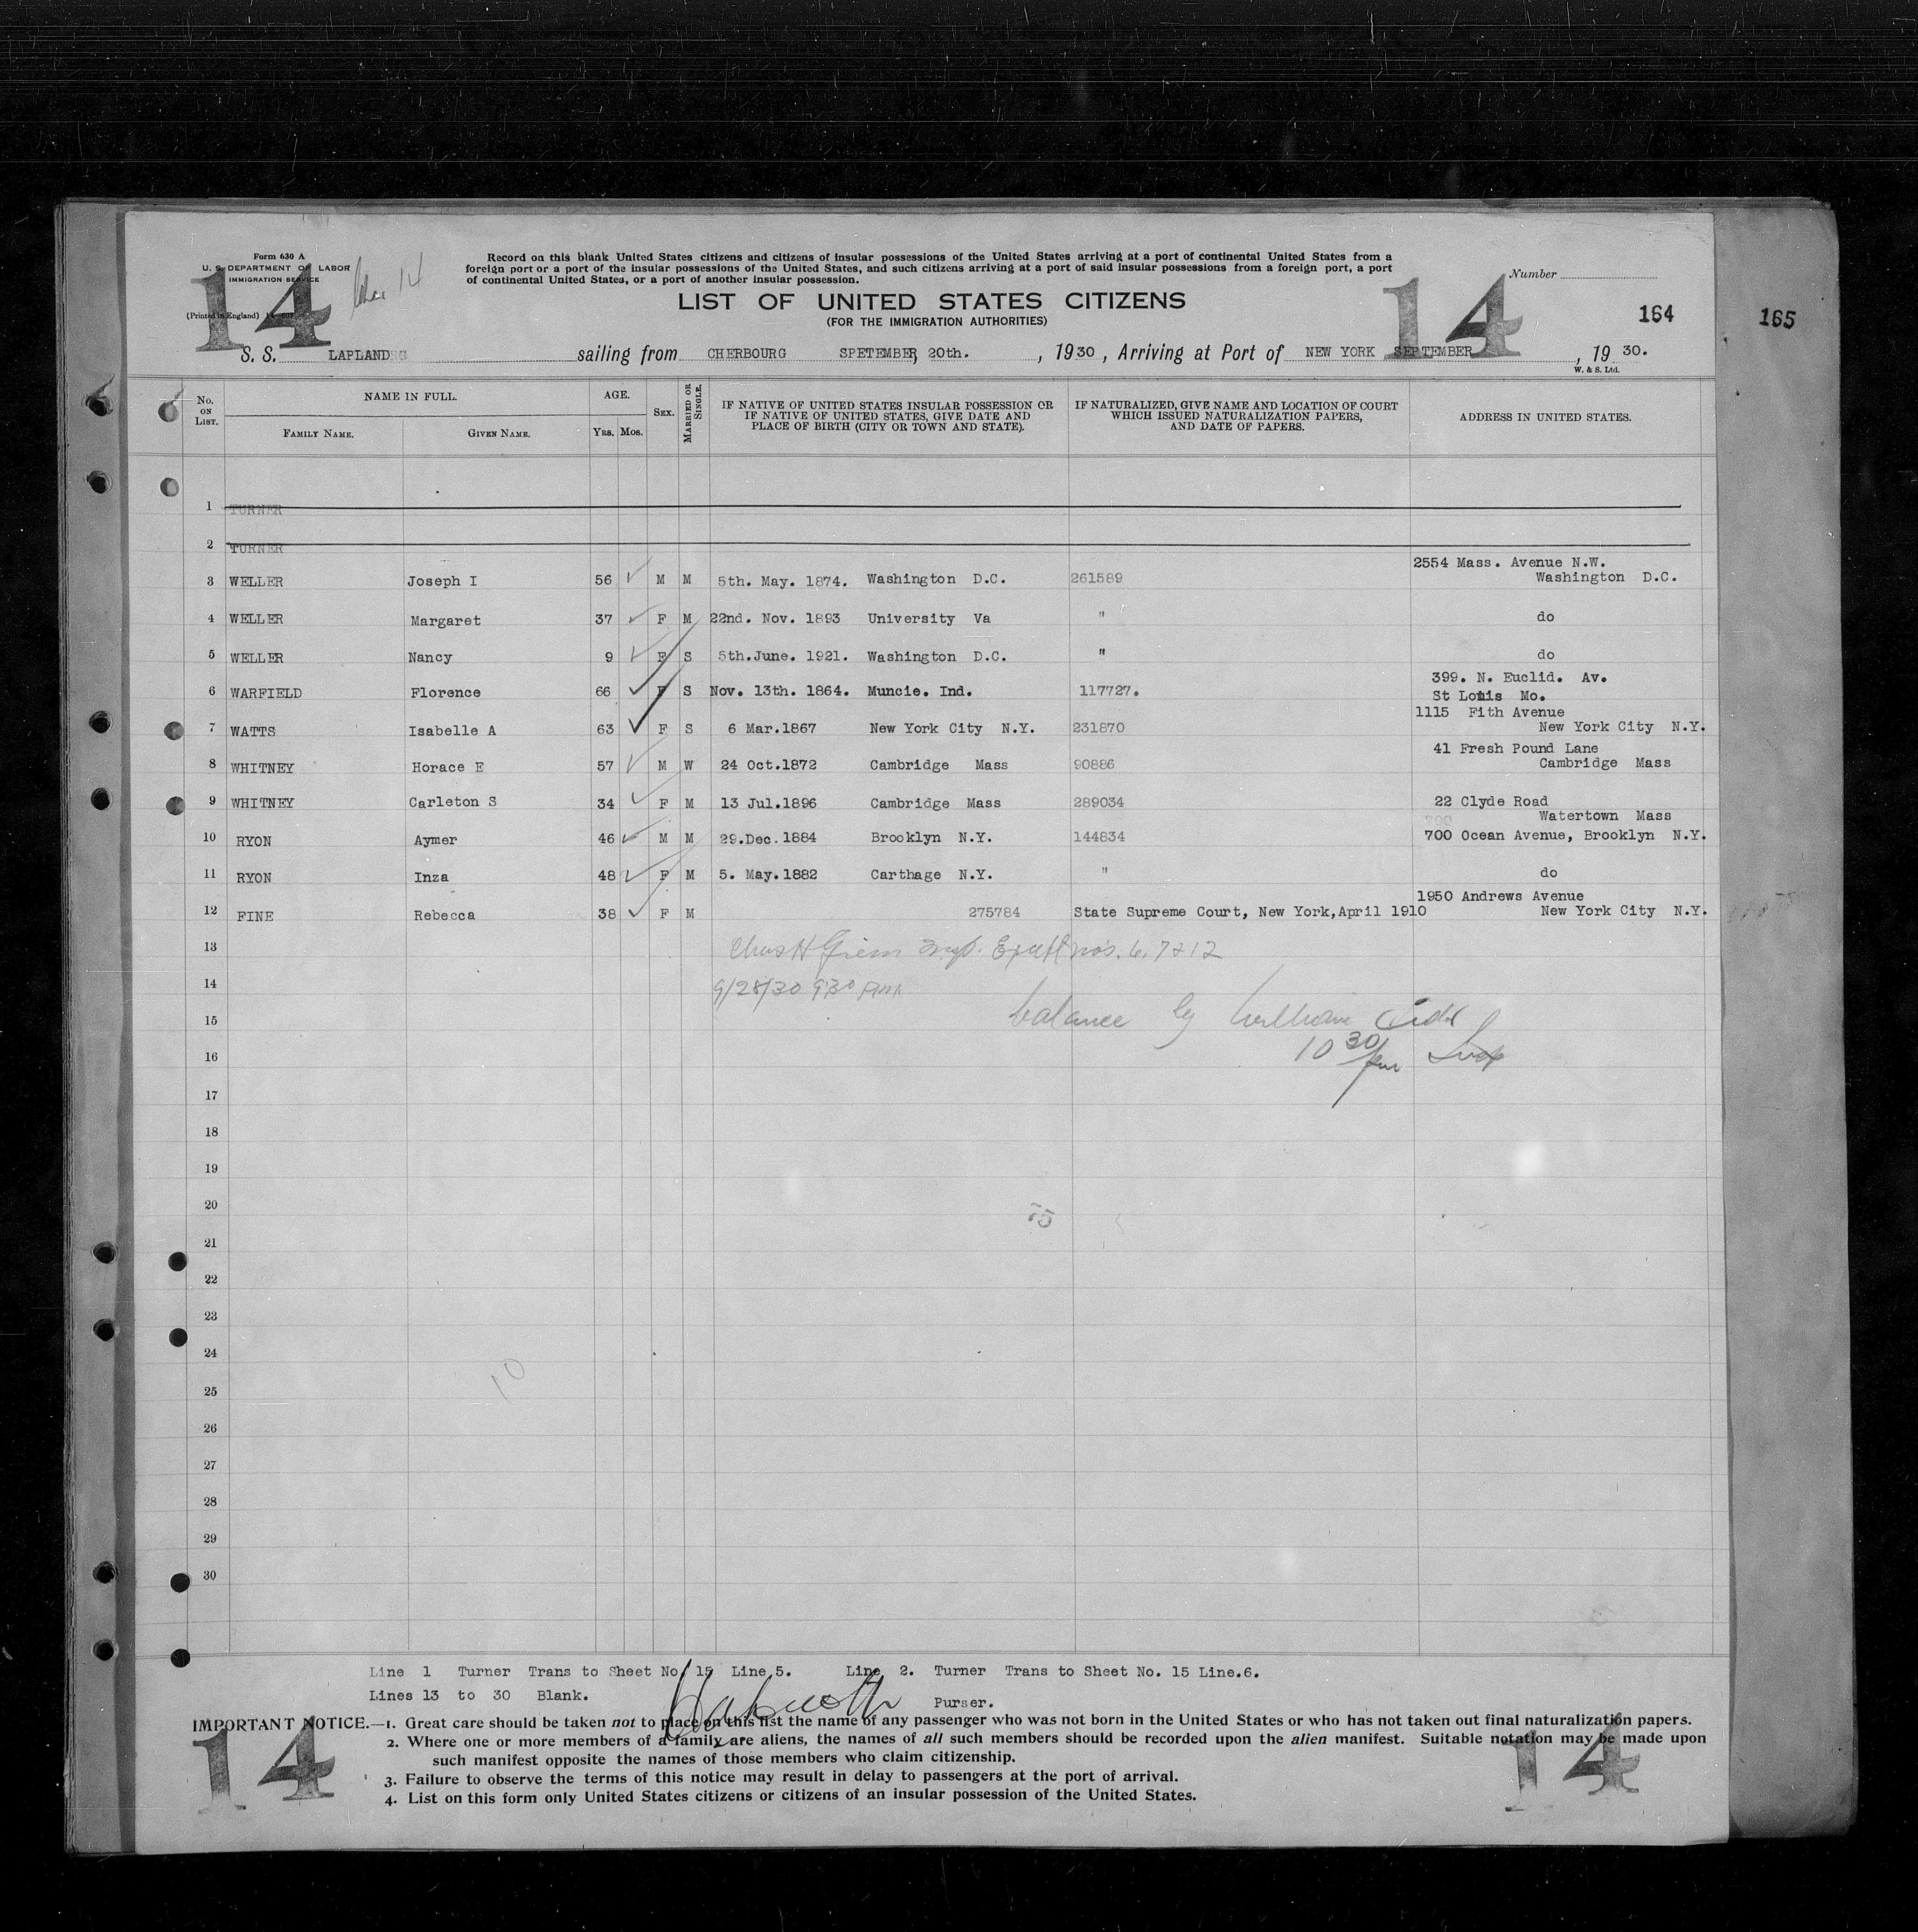 Form 630 A
U. S. DEPARTMENT OF LABOR
IMMIGRATION SERVICE
(Printed in England)
14
14
Record on this blank United States citizens and citizens of insular possessions of the United States arriving at a port of continental United States from a
foreign port or a port of the insular possessions of the United States, and such citizens arriving at a port of said insular possessions from a foreign port, a port
of continental United States, or a port of another insular possession.
LIST OF UNITED STATES CITIZENS
(FOR THE IMMIGRATION AUTHORITIES)
14
Number
164
165
S. S. LAPLAND sailing from CHERBOURG SPETEMBER, 20th. , 1930 , Arriving at Port of NEW YORK SEPTEMBER , 19 30.
W. & S. Ltd.
No. ON LIST.
NAME IN FULL.
FAMILY NAME. GIVEN NAME.
AGE.
YRS. MOS.
SEX.
MARRIED OR SINGLE.
IF NATIVE OF UNITED STATES INSULAR POSSESSION OR
IF NATIVE OF UNITED STATES, GIVE DATE AND
PLACE OF BIRTH (CITY OR TOWN AND STATE).
IF NATURALIZED, GIVE NAME AND LOCATION OF COURT
WHICH ISSUED NATURALIZATION PAPERS,
AND DATE OF PAPERS.
ADDRESS IN UNITED STATES.
1 TURNER
2 TURNER
2554 Mass. Avenue N.W.
3 WELLER Joseph I 56 M M 5th. May. 1874. Washington D.C. 261589 Washington D.C.
4 WELLER Margaret 37 F M 22nd. Nov. 1893 University Va " do
5 WELLER Nancy 9 F S 5th.June. 1921. Washington D.C. " do
399. N. Euclid. Av.
6 WARFIELD Florence 66 F S Nov. 13th. 1864. Muncie. Ind. 117727. St Louis Mo.
1115 Fith Avenue
7 WATTS Isabelle A 63 F S 6 Mar.1867 New York City N.Y. 231870 New York City N.Y.
41 Fresh Pound Lane
8 WHITNEY Horace E 57 M W 24 Oct.1872 Cambridge Mass 90886 Cambridge Mass
9 WHITNEY Carleton S 34 F M 13 Jul.1896 Cambridge Mass 289034 22 Clyde Road
Watertown Mass
10 RYON Aymer 46 M M 29.Dec.1884 Brooklyn N.Y. 144834 700 Ocean Avenue, Brooklyn N.Y.
11 RYON Inza 48 F M 5. May.1882 Carthage N.Y. " do
1950 Andrews Avenue
12 FINE Rebecca 38 F M 275784 State Supreme Court, New York,April 1910 New York City N.Y.
13 Chas H insp. nos. 6, 7 & 12
14 9/28/30 9 30 pm
15 balance by William
16 10 30 pm Insp
17
18
19
20
75
21
22
23
24
10
25
26
27
28
29
30
Line 1 Turner Trans to Sheet No. 15 Line 5. Line 2. Turner Trans to Sheet No. 15 Line.6.
Lines 13 to 30 Blank.
Purser.
IMPORTANT NOTICE.—1. Great care should be taken not to place on this list the name of any passenger who was not born in the United States or who has not taken out final naturalization papers.
2. Where one or more members of a family are aliens, the names of all such members should be recorded upon the alien manifest. Suitable notation may be made upon
such manifest opposite the names of those members who claim citizenship.
3. Failure to observe the terms of this notice may result in delay to passengers at the port of arrival.
4. List on this form only United States citizens or citizens of an insular possession of the United States.
14
14